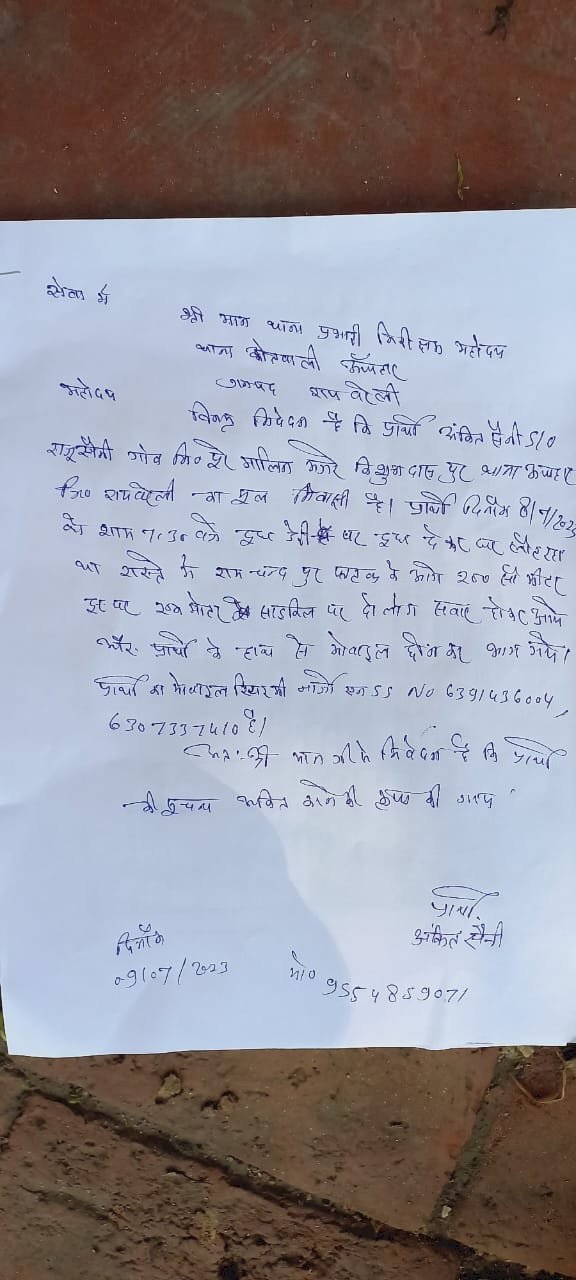 सेवा में
श्री मान थाना प्रभारी निरीक्षक महोदय
थाना कोतवाली ऊँचाहार
जनपद रायबरेली
महोदय
विनम्र निवेदन है कि प्रार्थी अंकित सैनी S/O
राजू सैनी गाँव नि० पूरे मालिन मजरे किशुनदासपुर थाना ऊंचाहार
जि० रायबरेली का मूल निवासी है। प्रार्थी दिनाँक 8/7/2023
को शाम 7:30 बजे दूध डेरी पर दूध देकर घर लौट रहा
था रास्ते में रामचन्द्रपुर फाटक के आगे 200 सौ मीटर
दूर पर मोटर साइकिल पर दो लोग सवार होकर आये
और प्रार्थी के हाथ से मोबाइल छीन कर भाग गये।
प्रार्थी का मोबाइल No 6391436004,
6307337410 है।
अतः श्री मान जी से निवेदन है कि प्रार्थी
की सूचना अंकित करने की कृपा की जाय
प्रार्थी
अंकित सैनी
दिनाँक
09/07/2023
मो० 9554859071